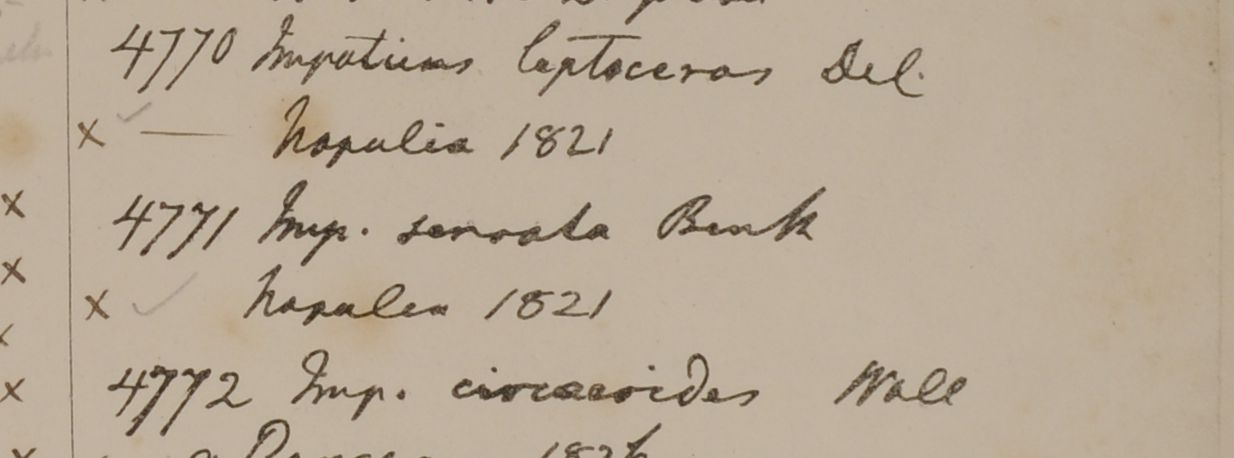 4770 Impatiens leptoceras Del.
x ✓ — Napalia 1821
4771 Imp. serrata Benth
x ✓ Napalea 1821
4772 Imp. circaeoides Wall
1826